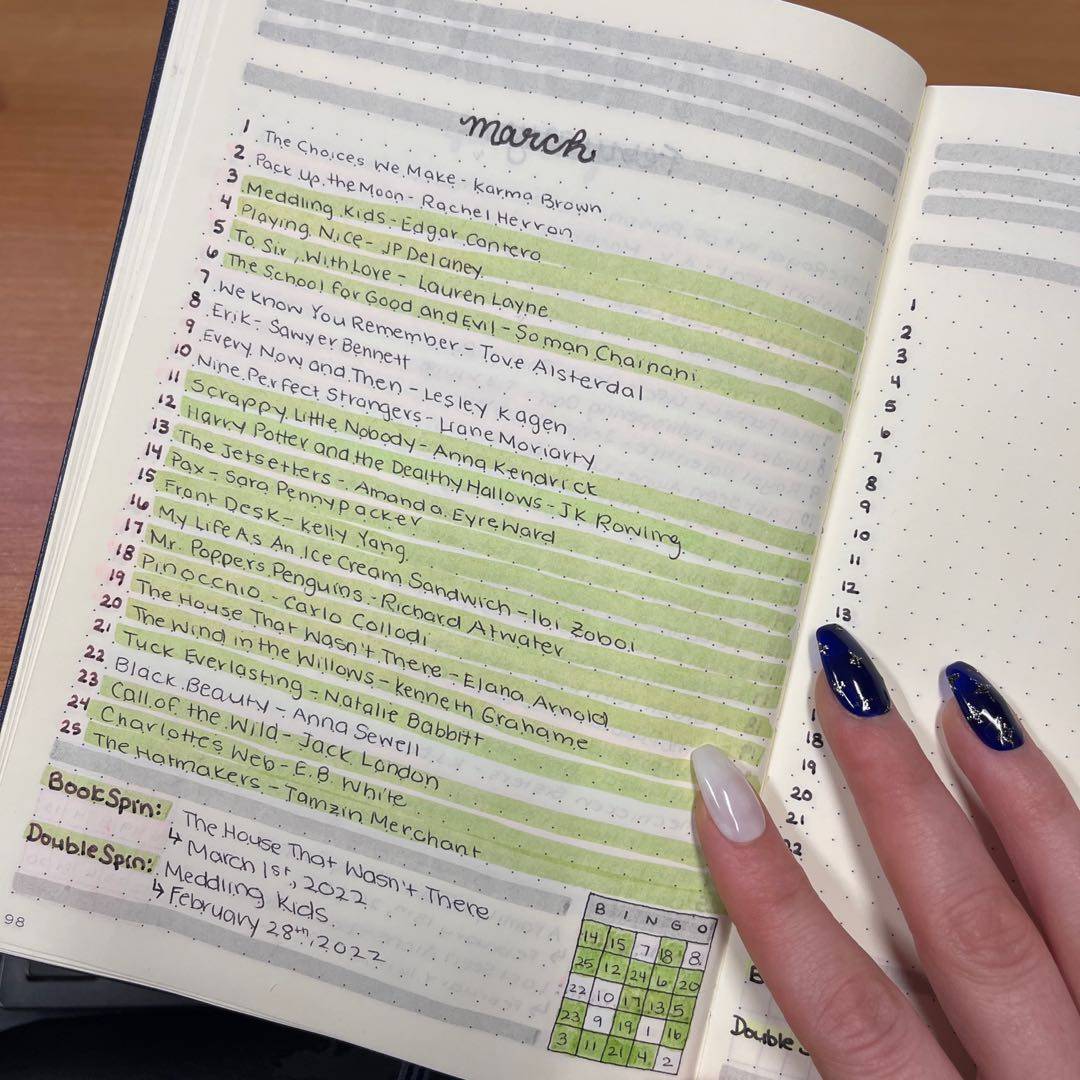 march
1 The Choices We Make - Karma Brown
2 Pack Up the Moon - Rachel Herron
3 Meddling Kids - Edgar Cantero
4 Playing Nice - JP Delaney
5 To Sir, With Love - Lauren Layne
6 The School for Good and Evil - Soman Chainani
7 We Know You Remember - Tove Alsterdal
8 Erik - Sawyer Bennett
9 Every Now and Then - Lesley Kagen
10 Nine Perfect Strangers - Liane Moriarty
11 Scrappy Little Nobody - Anna Kendrick
12 Harry Potter and the Dealthy Hallows - JK Rowling
13 The Jetsetters - Amanda Eyre Ward
14 Pax - Sara Pennypacker
15 Front Desk - Kelly Yang
16 My Life As An Ice Cream Sandwich - Ibi Zoboi
17 Mr. Poppers Penguins - Richard Atwater
18 Pinocchio - Carlo Collodi
19 The House That Wasn't There - Elana Arnold
20 The Wind in the Willows - Kenneth Grahame
21 Tuck Everlasting - Natalie Babbitt
22 Black Beauty - Anna Sewell
23 Call of the Wild - Jack London
24 Charlottes Web - E.B. White
25 The Hatmakers - Tamzin Merchant
BookSpin: The House That Wasn't There
↳ March 1st, 2022
DoubleSpin: Meddling Kids
↳ February 28th, 2022
98
B I N G O
14 15 7 18 8
25 12 24 6 20
22 10 17 13 5
23 9 19 1 16
3 11 21 4 2
1
2
3
4
5
6
7
8
9
10
11
12
13
18
19
20
21
22
B
Double S